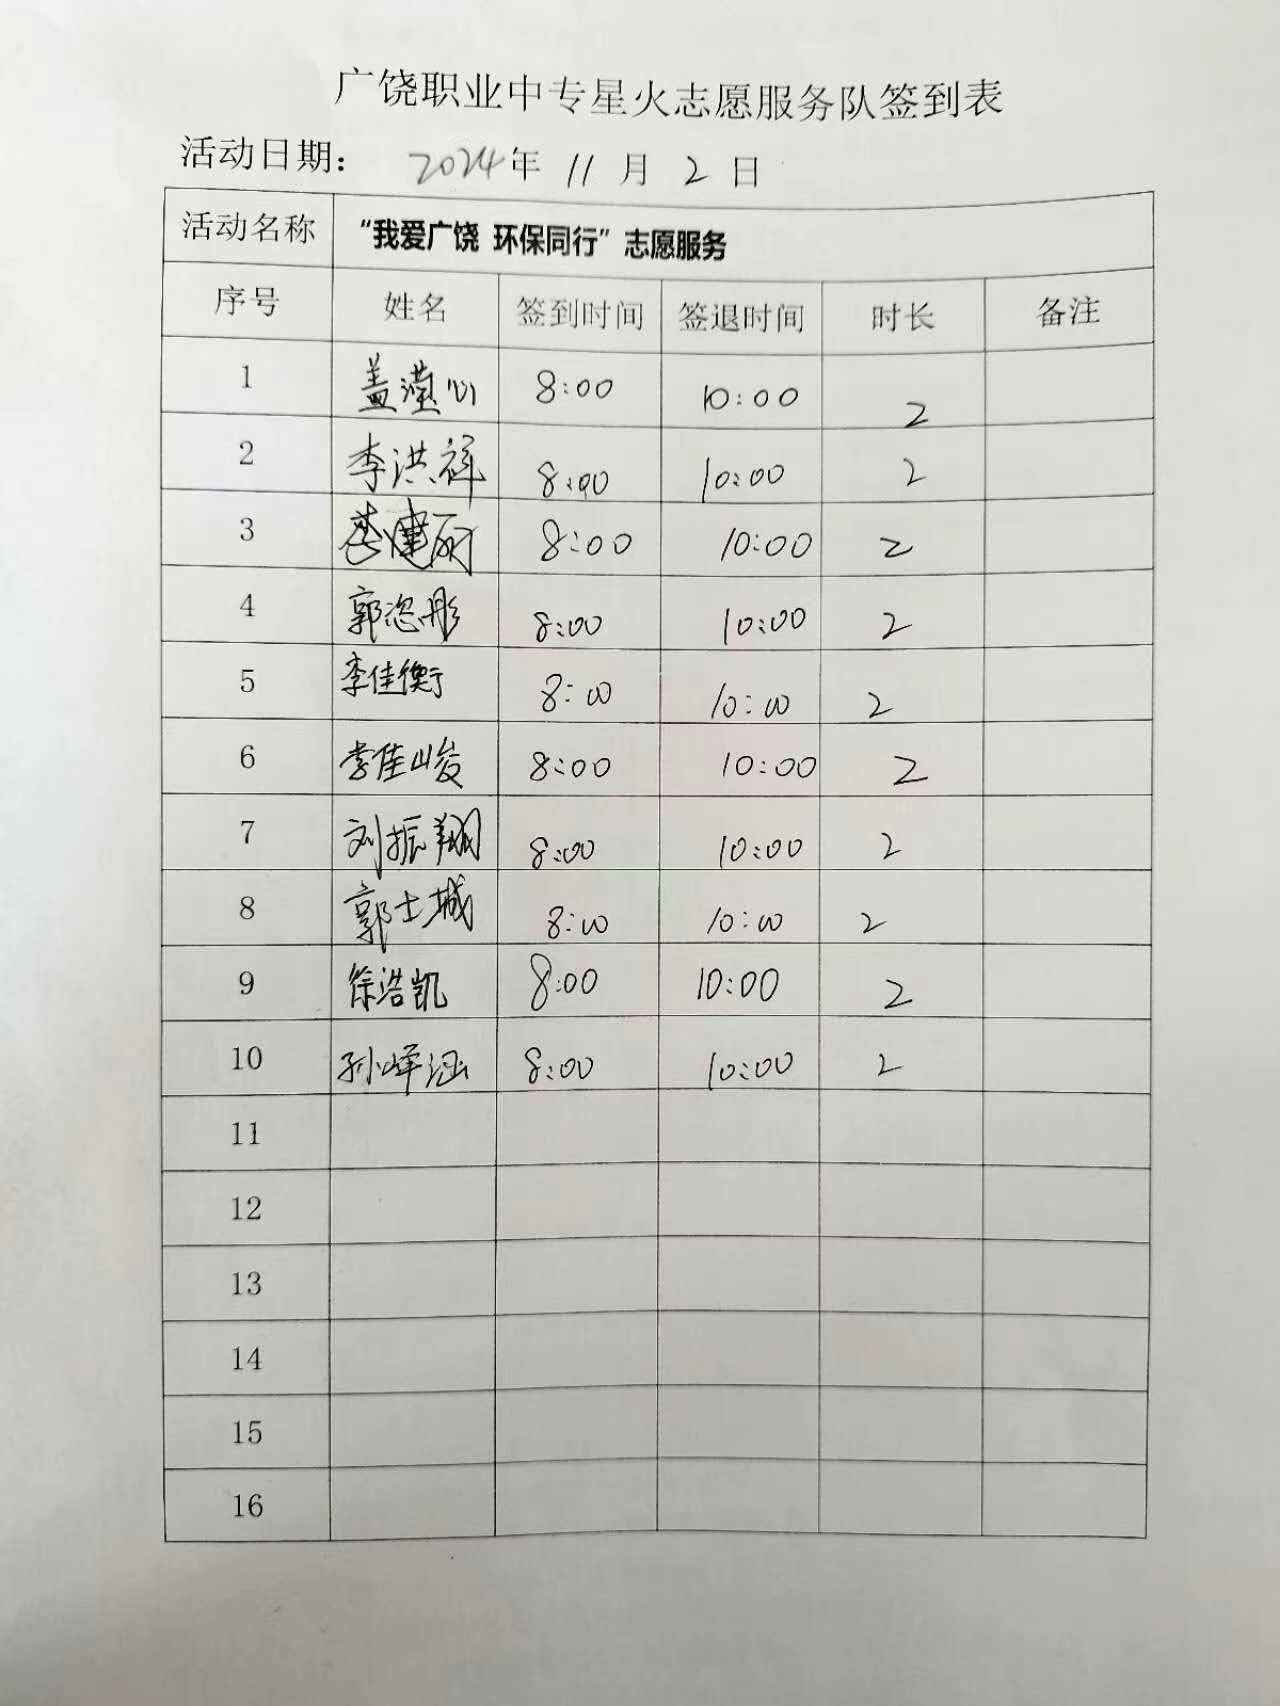 广饶职业中专星火志愿服务队签到表
活动日期： 2024年 11 月 2 日
活动名称 “我爱广饶 环保同行”志愿服务
序号 姓名 签到时间 签退时间 时长 备注
1 盖滢心 8:00 10:00 2
2 李洪祥 8:00 10:00 2
3 8:00 10:00 2
4 郭恣彤 8:00 10:00 2
5 李佳衡 8:00 10:00 2
6 李佳峻 8:00 10:00 2
7 刘振翔 8:00 10:00 2
8 郭士城 8:00 10:00 2
9 徐浩凯 8:00 10:00 2
10 孙峰涵 8:00 10:00 2
11
12
13
14
15
16